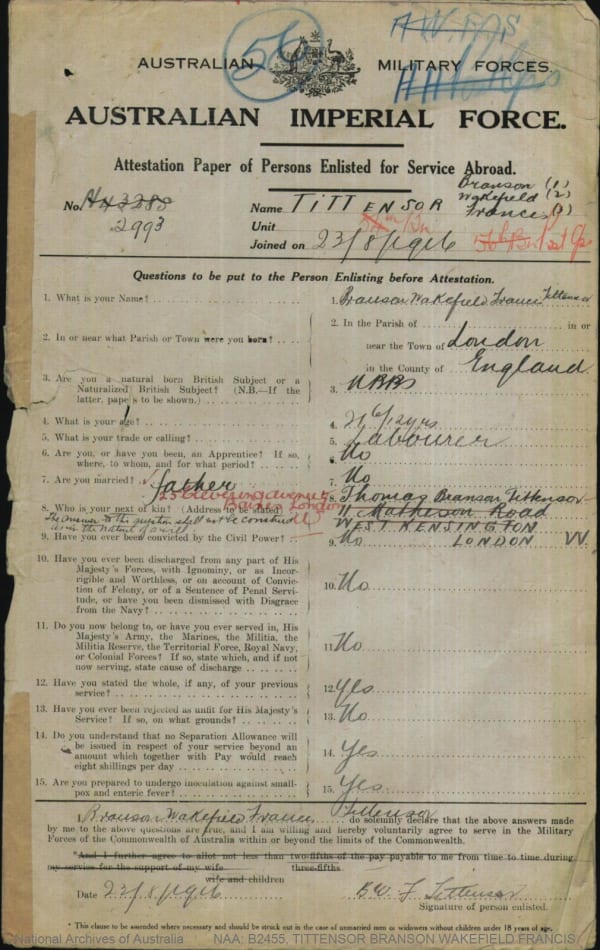 56
A.W.
AUSTRALIAN MILITARY FORCES.
AUSTRALIAN IMPERIAL FORCE.
Attestation Paper of Persons Enlisted for Service Abroad.
No.
2993
Name TITTENSOR
Branson (1)
Wakefield (2)
Francis (3)
Unit
Joined on 23/8/1916
Questions to be put to the Person Enlisting before Attestation.
1. What is your Name? 1. Branson Wakefield Francis Tittensor
2. In or near what Parish or Town were you born? 2. In the Parish of in or
near the Town of London
in the County of England
3. Are you a natural born British Subject or a
Naturalized British Subject? (N.B.—If the
latter, papers to be shown.) 3. NBBS
4. What is your age? 4. 21 6/12 yrs
5. What is your trade or calling? 5. Labourer
6. Are you, or have you been, an Apprentice? If so,
where, to whom, and for what period? 6. No
7. Are you married? 7. No
father
8. Who is your next of kin? (Address to be stated) 8. Thomas Branson Tittensor
11 Matheson Road
WEST KENSINGTON
LONDON W
The answer to this question shall not be construed
as in the nature of a will
9. Have you ever been convicted by the Civil Power? 9. No
10. Have you ever been discharged from any part of His
Majesty's Forces, with Ignominy, or as Incor-
rigible and Worthless, or on account of Convic-
tion of Felony, or of a Sentence of Penal Servi-
tude, or have you been dismissed with Disgrace
from the Navy? 10. No
11. Do you now belong to, or have you ever served in, His
Majesty's Army, the Marines, the Militia, the
Militia Reserve, the Territorial Force, Royal Navy,
or Colonial Forces? If so, state which, and if not
now serving, state cause of discharge 11. No
12. Have you stated the whole, if any, of your previous
service? 12. Yes
13. Have you ever been rejected as unfit for His Majesty's
Service? If so, on what grounds? 13. No
14. Do you understand that no Separation Allowance will
be issued in respect of your service beyond an
amount which together with Pay would reach
eight shillings per day 14. Yes
15. Are you prepared to undergo inoculation against small-
pox and enteric fever? 15. Yes
I, Branson Wakefield Francis Tittensor do solemnly declare that the above answers made
by me to the above questions are true, and I am willing and hereby voluntarily agree to serve in the Military
Forces of the Commonwealth of Australia within or beyond the limits of the Commonwealth.
*And I further agree to allot not less than two-fifths of the pay payable to me from time to time during
my service for the support of my wife three-fifths
wife and children
Date 23/8/1916 B W F Tittensor
Signature of person enlisted.
* This clause to be amended where necessary and should be struck out in the case of unmarried men or widowers without children under 18 years of age.
National Archives of Australia NAA: B2455, TITTENSOR BRANSON WAKEFIELD FRANCIS